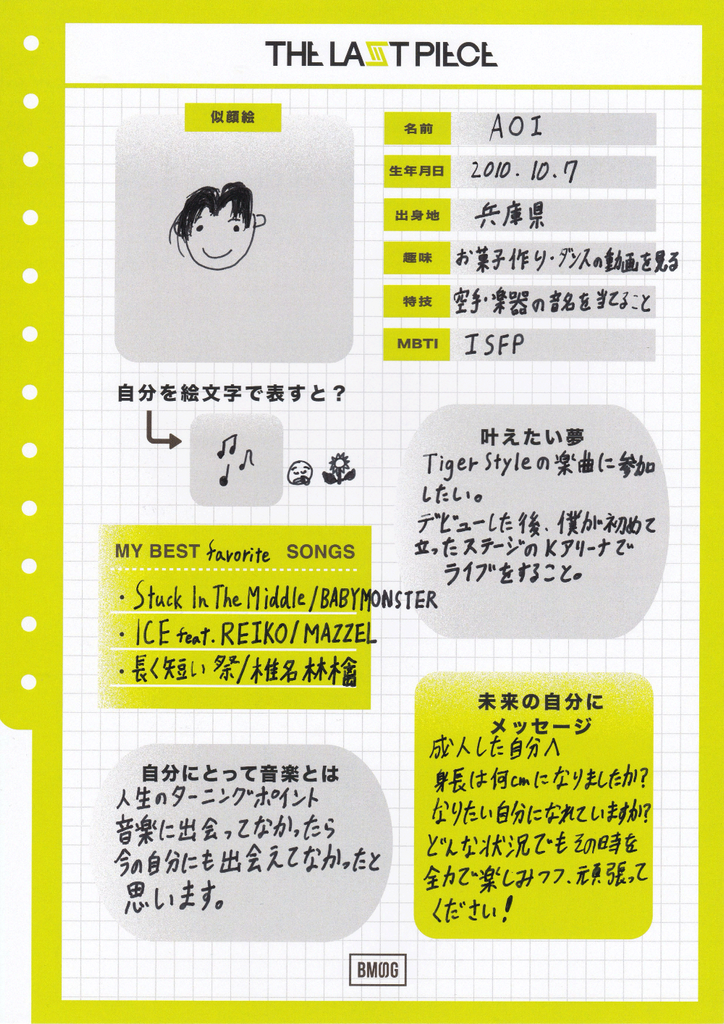 THE LAST PIECE
似顔絵
名前 AOI
生年月日 2010.10.7
出身地 兵庫県
趣味 お菓子作り・ダンスの動画を見る
特技 空手・楽器の音名を当てること
MBTI ISFP
自分を絵文字で表すと?
叶えたい夢
Tiger Styleの楽曲に参加
したい。
デビューした後、僕が初めて
立ったステージのKアリーナで
ライブをすること。
MY BEST favorite SONGS
・Stuck In The Middle/BABYMONSTER
・ICE feat. REIKO/MAZZEL
・長く短い祭/椎名林檎
未来の自分に
メッセージ
成人した自分へ
身長は何cmになりましたか?
なりたい自分になれていますか?
どんな状況でもその時を
全力で楽しみつつ、頑張って
ください!
自分にとって音楽とは
人生のターニングポイント
音楽に出会ってなかったら
今の自分にも出会えてなかったと
思います。
BMSG